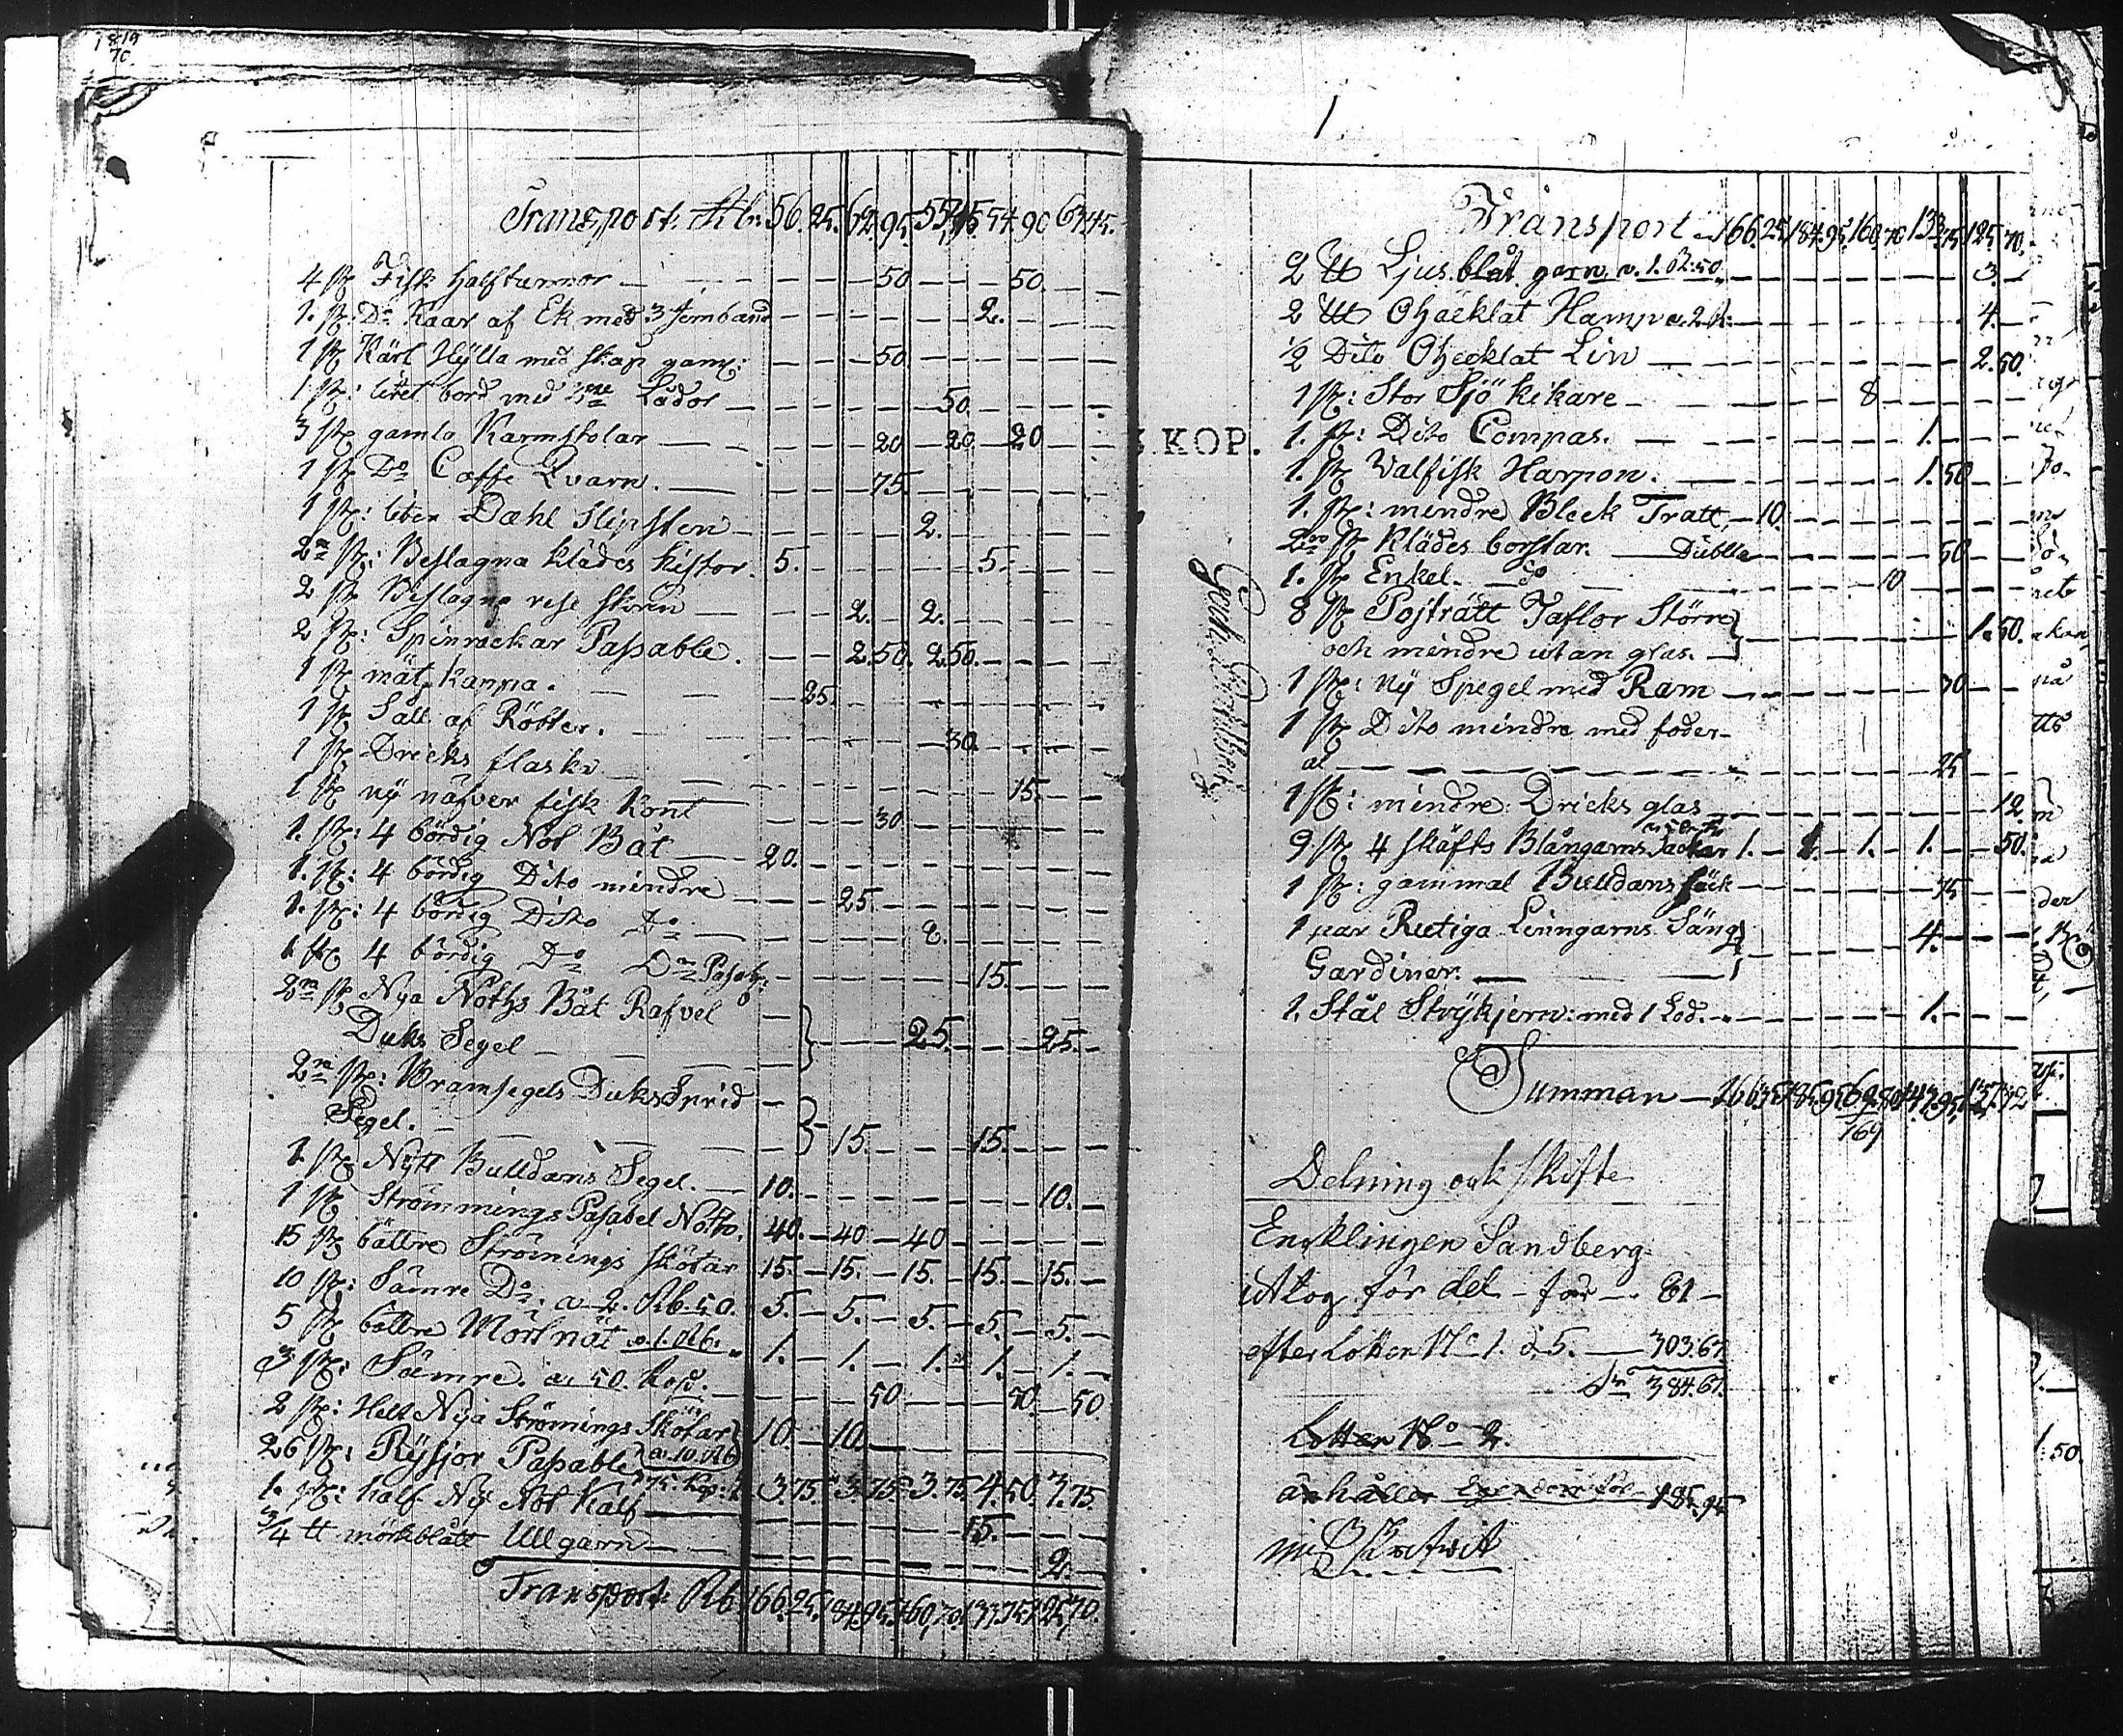 1819
70.
Transport: Rb: 56. 25. 62. 95. 55. 45. 54. 90. 63. 45.
4 st Fisk halftunnor — 50 — 50
1. st Do Kaar af Ek med 3 Jernband — 2.
1 st Kärl Hylla med skåp gaml: — 50
1 st: litet bord med 3ne Lådor — 50
3 st gamla Karmstolar — 20 — 20 — 20
1 st Do Caffe Qvarn. — 75
1 st: liten Dahl Slipsten — 2.
2ne st: Beslagna klädes kistor. 5. — 5.
2 st Beslagne rese skrin — 2. — 2.
2 st: Spinrockar Passable. — 2.50. 2.50.
1 st mät kanna. — 25.
1 st Såll af Rötter. — 30
1 st Dricks flaska — 15.
1 st ny näfver fisk Kont — 30
1. st: 4 bördig Not Båt — 20.
1. st: 4 bördig Dito mindre — 25.
1. st: 4 bördig Dito Do — 2.
1 st 4 bördig Do Do Pasab: — 15.
2ne st Nya Noths Båt Rafvel
Duks Segel — 25. — 25.
2ne st: Bramsegels Duks Sprid
Segel. — 15. — 15.
1. st Nytt Bulldans Segel. — 10. — 10.
1 st Strömmings Pasabel Noth. 40. — 40 — 40
15 st bättre Strömings skötar 15. — 15. — 15. — 15. — 15.
10 st: Sämre Do. a 2. Rb. 50. 5. — 5. — 5. — 5. — 5.
5 st bättre Mörtnät a 1. Rb. 1. — 1. — 1. — 1. — 1.
3 st: Sämre. a 50. Kop. — 50 — 50 — 50
2 st: Helt Nya Strömings Skötar 10. — 10.
a 10. Rb
26 st: Rysjor Passable a 75. Kop: 3.75. 3.75. 3.75. 4.50 3.75
1. st: half Ny Not Kalf — 15.
3/4 tt mörkblått Ullgarn — 2.
Transport: Rb 166.25. 184.95. 160,70. 133.75. 125,70.
1.
S.KOP.
Transport 166.25. 184.95. 160 70 133 75 125. 70.
2 tt Ljus blåt garn a. 1. R: 50. — 3.
2 tt Ohäcklat Hamp a. 2 R: — 4.
1/2 Dito Ohecklat Lin — 2.50.
1 st: Stor Sjö kikare — 8
1. st: Dito Compas. — 1.
1. st Valfisk Harpon. — 1.50
1. st: mindre Bleck Tratt, — 10.
2ne st Klädes borstar. — Dubbla — 50
1. st Enkel. do — 10
8 st Pojträtt Taflor Större
och mindre utan glas. — 1.50.
1 st: ny Spegel med Ram — 70
1 st Dito mindre med foder-
al — 25
1 st: mindre Dricks glas — 12.
9 st 4 skäfts Blångarns säckar 1. — 1. — 1. — 1. — 50.
1 st: gammal Bulldans säck — 75
1 par Rutiga Linngarns Säng
Gardiner. — 4.
1. Stål Strykjern: med 1 Lod. — 1.
Summan — 166.35. 185.95. 169.80 143.95. 137.32
169
Delning och skifte
Enklingen Sandberg
uttog för del — för — 81 —
efter Lotten No 1. & 5. — 303.67.
Sm 384.67.
Lotten No 2.
anhåller Egendom för — 185. 95